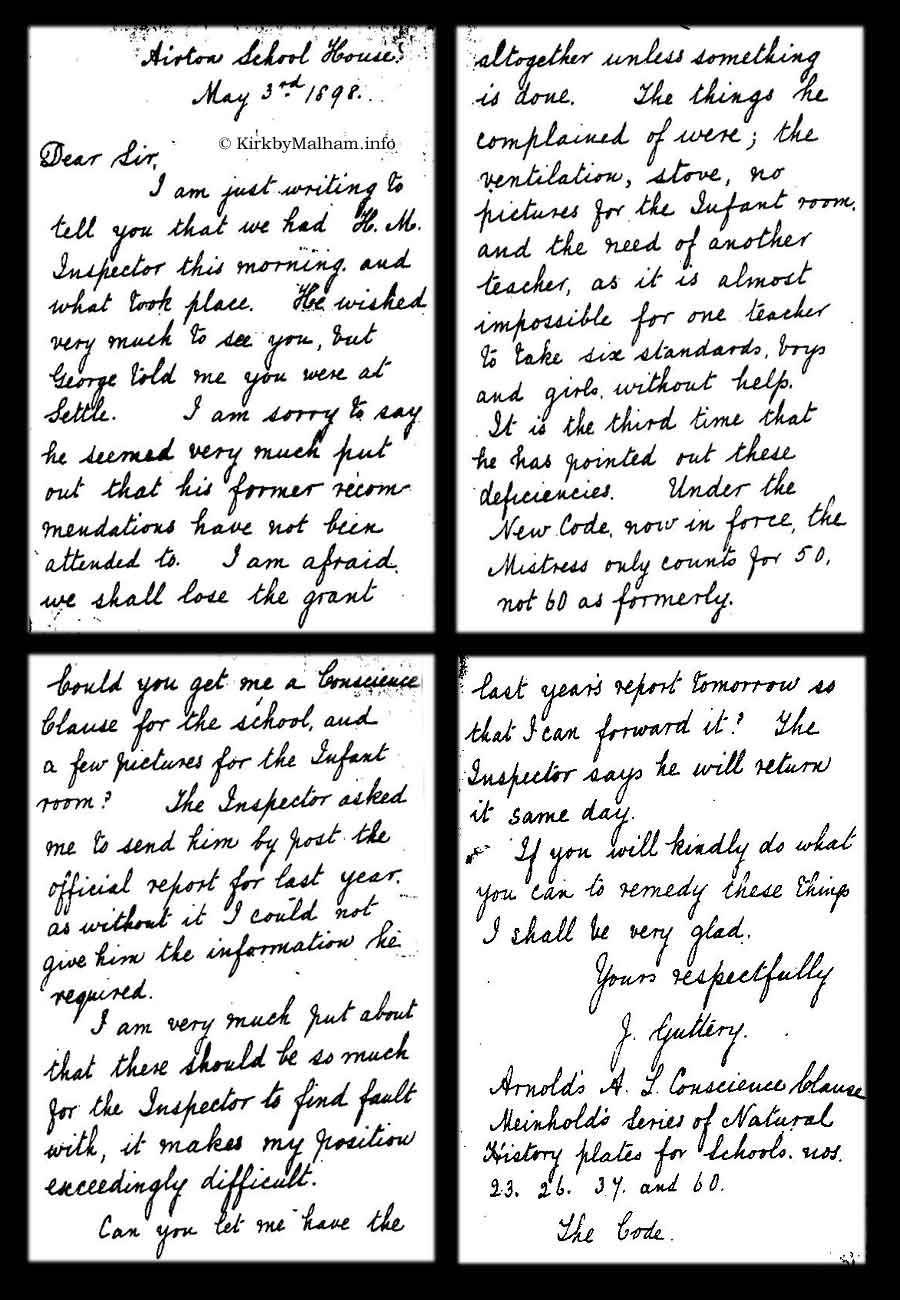 Airton School House.
May 3rd 1898.
© KirkbyMalham.info
Dear Sir,
I am just writing to
tell you that we had H. M.
Inspector this morning. and
what took place. He wished
very much to see you, but
George told me you were at
Settle. I am sorry to say
he seemed very much put
out that his former recom-
mendations have not been
attended to. I am afraid
we shall lose the grant
altogether unless something
is done. The things he
complained of were; the
ventilation, stove, no
pictures for the Infant room.
and the need of another
teacher, as it is almost
impossible for one teacher
to take six standards, boys
and girls, without help.
It is the third time that
he has pointed out these
deficiencies. Under the
New Code, now in force, the
Mistress only counts for 50,
not 60 as formerly.
Could you get me a Conscience
Clause for the school, and
a few pictures for the Infant
room? The Inspector asked
me to send him by post the
official report for last year.
as without it I could not
give him the information he
required.
I am very much put about
that there should be so much
for the Inspector to find fault
with, it makes my position
exceedingly difficult.
Can you let me have the
last year's report tomorrow so
that I can forward it? The
Inspector says he will return
it same day.
If you will kindly do what
you can to remedy these things
I shall be very glad.
Yours respectfully
J. Guttery.
Arnold's A. L. Conscience Clause
Meinhold's series of Natural
History plates for Schools. nos.
23. 26. 37. and 60.
The Code.